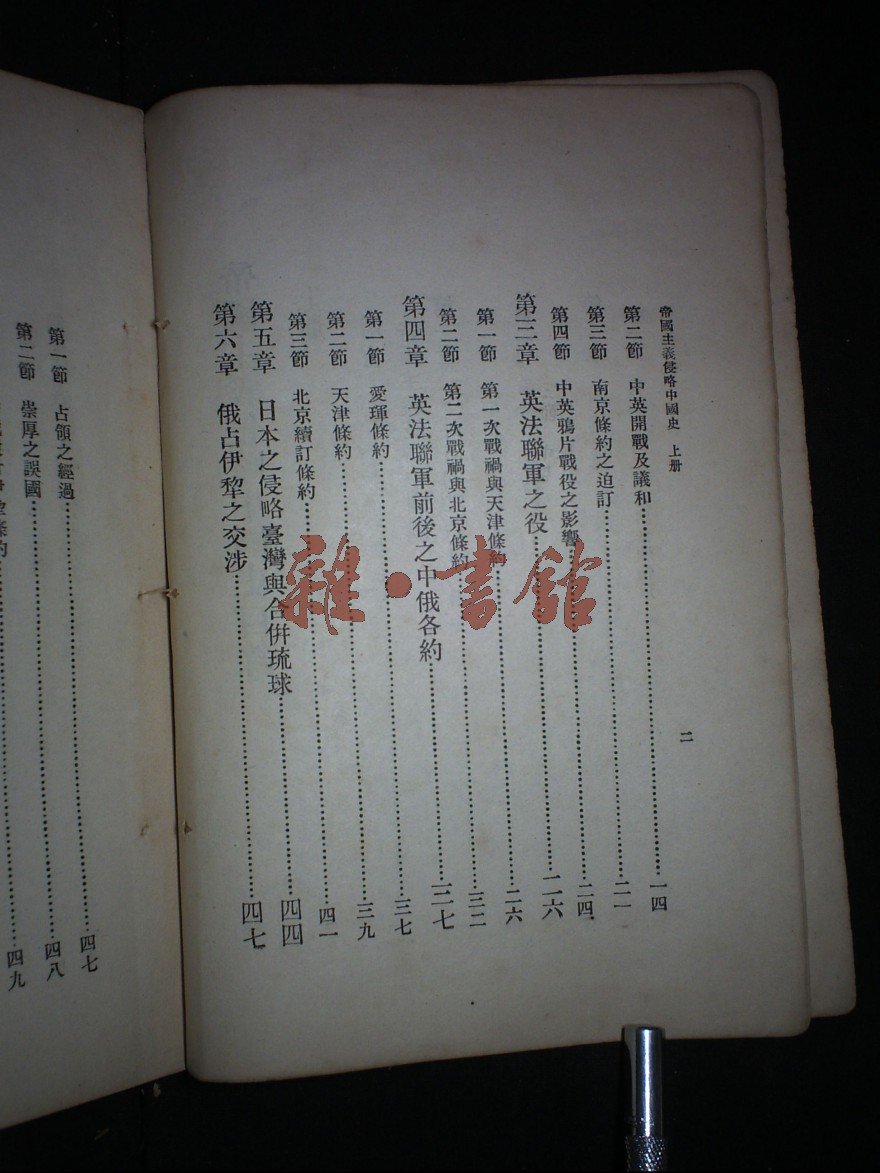 帝國主義侵略中國史 上册
二
第二節 中英開戰及議和……一四
第三節 南京條約之迫訂……二一
第四節 中英鴉片戰役之影響……二四
第三章 英法聯軍之役……二六
第一節 第一次戰禍與天津條約……二六
第二節 第二次戰禍與北京條約……三二
第四章 英法聯軍前後之中俄各約……三七
第一節 愛琿條約……三七
第二節 天津條約……三九
第三節 北京續訂條約……四一
第五章 日本之侵略臺灣與合併琉球……四四
第六章 俄占伊犂之交涉……四七
第一節 占領之經過……四七
第二節 崇厚之誤國……四八
條約……四九
雜·書館